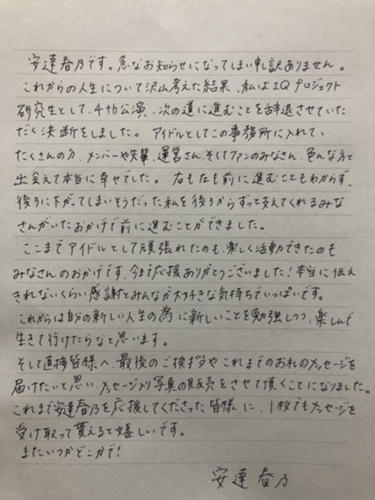 安達春乃です。急なお知らせになってしまい申し訳ありません。
これからの人生について沢山考えた結果、私は2Qプロジェクト
研究生として、4th公演、次の道に進むことを辞退させていた
だく決断をしました。アイドルとしてこの事務所に入れて、
たくさんの方、メンバーや先輩、運営さん、そしてファンのみなさん、色んな方と
出会えて本当に幸せでした。右も左も前に進むこともわからず、
後ろに下がってしまいそうだった私を後ろからずっと支えてくれるみな
さんがいたおかげで前に進むことができました。
ここまでアイドルとして頑張れたのも、楽しく活動できたのも
みなさんのおかげです、今まで応援ありがとうございました!本当に伝え
きれないくらい感謝とみんなが大好きな気持ちでいっぱいです。
これからは自分の新しい人生の為に新しいことを勉強しつつ、楽しんで
生きて行けたらなと思います。
そして直接皆様へ、最後のご挨拶やこれまでのお礼のメッセージを
届けたいと思い、メッセージ入り写真の販売をさせて頂くことになりました。
これまで安達春乃を応援してくださった皆様に、1枚でもメッセージを
受け取って貰えると嬉しいです。
またいつかどこかで!
安達春乃